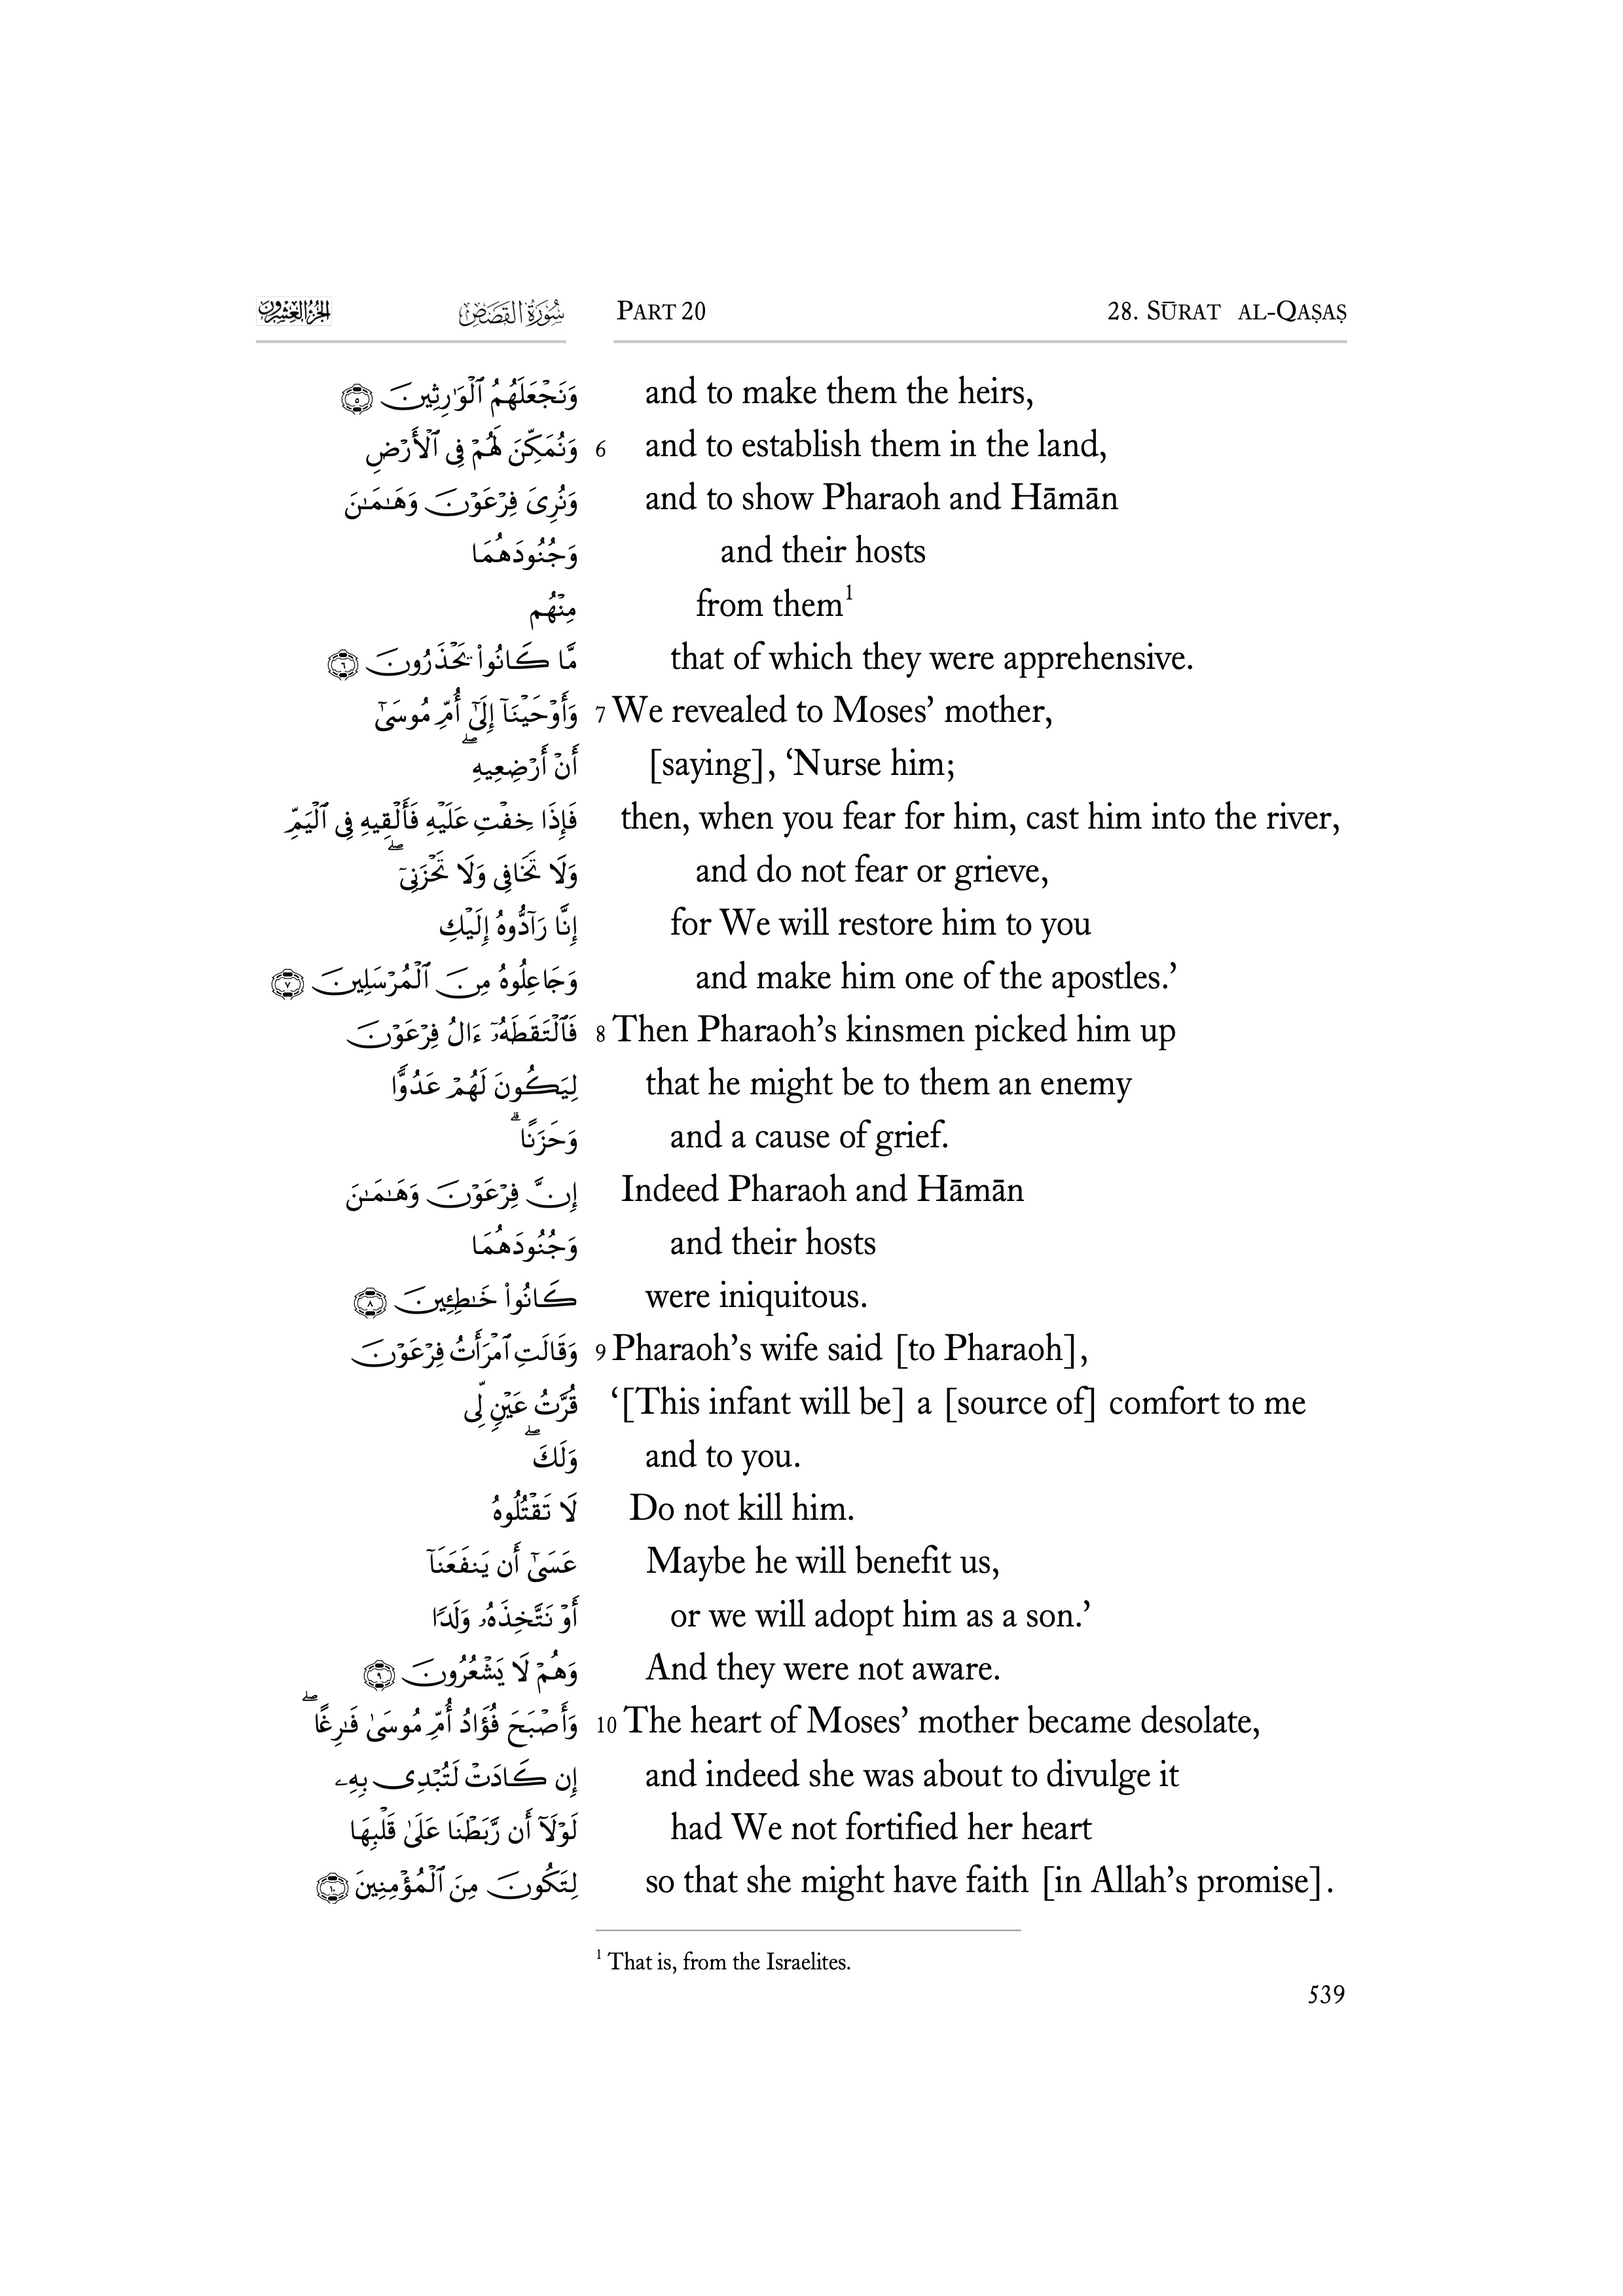 الجزء العشرون سُورَةُ القَصَصِ PART 20 28. SŪRAT AL-QAṢAṢ
وَنَجْعَلَهُمُ ٱلْوَٰرِثِينَ ۝٥ and to make them the heirs,
وَنُمَكِّنَ لَهُمْ فِى ٱلْأَرْضِ 6 and to establish them in the land,
وَنُرِىَ فِرْعَوْنَ وَهَـٰمَـٰنَ and to show Pharaoh and Hāmān
وَجُنُودَهُمَا and their hosts
مِنْهُم from them¹
مَّا كَانُوا۟ يَحْذَرُونَ ۝٦ that of which they were apprehensive.
وَأَوْحَيْنَآ إِلَىٰٓ أُمِّ مُوسَىٰٓ 7 We revealed to Moses’ mother,
أَنْ أَرْضِعِيهِ ۖ [saying], ‘Nurse him;
فَإِذَا خِفْتِ عَلَيْهِ فَأَلْقِيهِ فِى ٱلْيَمِّ then, when you fear for him, cast him into the river,
وَلَا تَخَافِى وَلَا تَحْزَنِىٓ ۖ and do not fear or grieve,
إِنَّا رَآدُّوهُ إِلَيْكِ for We will restore him to you
وَجَاعِلُوهُ مِنَ ٱلْمُرْسَلِينَ ۝٧ and make him one of the apostles.’
فَٱلْتَقَطَهُۥٓ ءَالُ فِرْعَوْنَ 8 Then Pharaoh’s kinsmen picked him up
لِيَكُونَ لَهُمْ عَدُوًّا that he might be to them an enemy
وَحَزَنًا ۗ and a cause of grief.
إِنَّ فِرْعَوْنَ وَهَـٰمَـٰنَ Indeed Pharaoh and Hāmān
وَجُنُودَهُمَا and their hosts
كَانُوا۟ خَـٰطِـِٔينَ ۝٨ were iniquitous.
وَقَالَتِ ٱمْرَأَتُ فِرْعَوْنَ 9 Pharaoh’s wife said [to Pharaoh],
قُرَّتُ عَيْنٍ لِّى ‘[This infant will be] a [source of] comfort to me
وَلَكَ ۖ and to you.
لَا تَقْتُلُوهُ Do not kill him.
عَسَىٰٓ أَن يَنفَعَنَآ Maybe he will benefit us,
أَوْ نَتَّخِذَهُۥ وَلَدًا or we will adopt him as a son.’
وَهُمْ لَا يَشْعُرُونَ ۝٩ And they were not aware.
وَأَصْبَحَ فُؤَادُ أُمِّ مُوسَىٰ فَـٰرِغًا ۖ 10 The heart of Moses’ mother became desolate,
إِن كَادَتْ لَتُبْدِى بِهِۦ and indeed she was about to divulge it
لَوْلَآ أَن رَّبَطْنَا عَلَىٰ قَلْبِهَا had We not fortified her heart
لِتَكُونَ مِنَ ٱلْمُؤْمِنِينَ ۝١٠ so that she might have faith [in Allah’s promise].
¹ That is, from the Israelites.
539